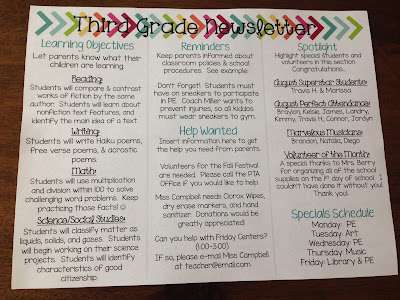 Third Grade Newsletter
Learning Objectives
Let parents know what their
children are learning.
Reading:
Students will compare & contrast
works of fiction by the same
author. Students will learn about
nonfiction text features, and
identify the main idea of a text.
Writing:
Students will write Haiku poems,
free verse poems, & acrostic
poems.
Math:
Students will use multiplication
and division within 100 to solve
challenging word problems. Keep
practicing those facts! ☺
Science/Social Studies:
Students will classify matter as
liquids, solids, and gases. Students
will begin working on their science
projects. Students will identify
characteristics of good
citizenship.
Reminders
Keep parents informed about
classroom policies & school
procedures. See example:
Don't forget! Students must
have on sneakers to participate
in PE. Coach Miller wants to
prevent injuries, so all kiddos
must wear sneakers to gym.
Help Wanted
Insert information here to get
the help you need from parents.
Volunteers for the Fall Festival
are needed. Please call the PTA
Office if you would like to help.
Miss Campbell needs Clorox Wipes,
dry erase markers, and hand
sanitizer. Donations would be
greatly appreciated!
Can you help with Friday Centers?
(1:00-3:00)
If so, please e-mail Miss Campbell
at teacher@email.com
Spotlight
Highlight special students and
volunteers in this section.
Congratulations...
August Superstar Students:
Travis H. & Marissa
August Perfect Attendance:
Braylon, Kelsie, James, Landry,
Kimmy, Travis H., Connor, Jordyn
Marvelous Musicians:
Brandon, Natalia, Diego
Volunteer of the Month:
A special thanks to Mrs. Berry
for organizing all of the school
supplies on the 1st day of school. I
couldn't have done it without you!
Thank you!
Specials Schedule
Monday: PE
Tuesday: Art
Wednesday: PE
Thursday: Music
Friday: Library & PE